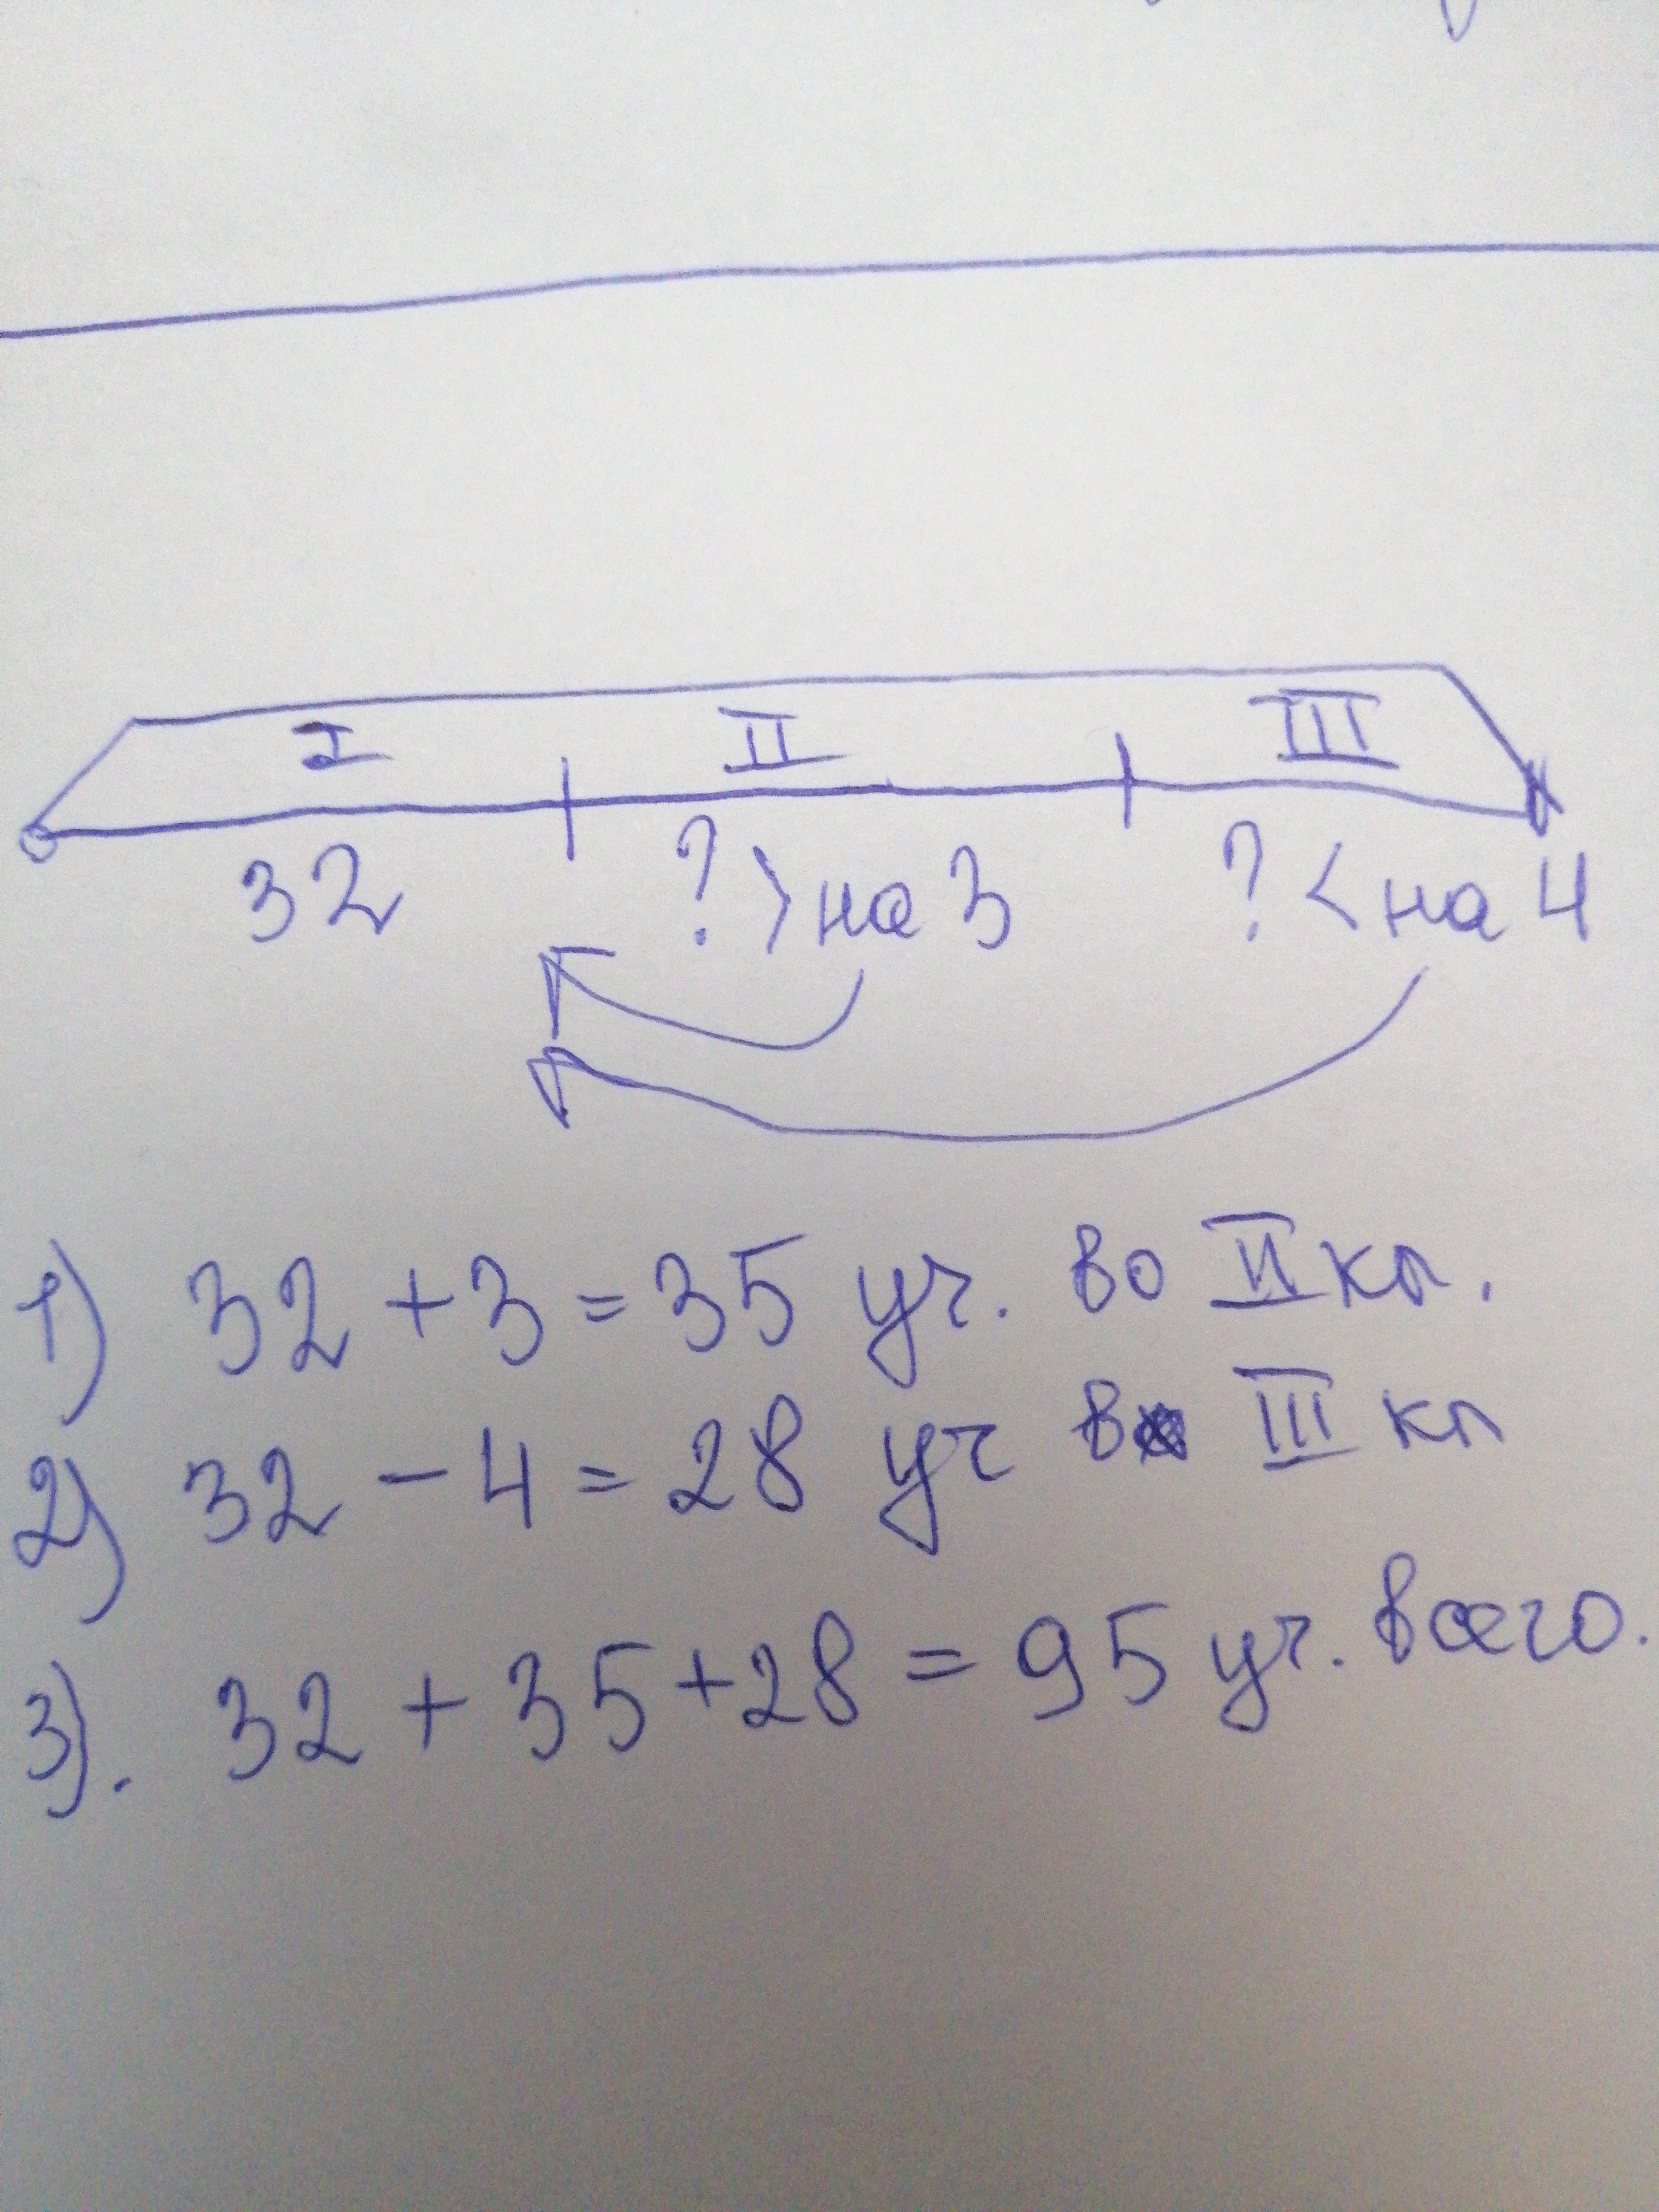 I II III
32 ? > на 3 ? < на 4
1) 32 + 3 = 35 уч. во II кл.
2) 32 - 4 = 28 уч в III кл
3). 32 + 35 + 28 = 95 уч. всего.